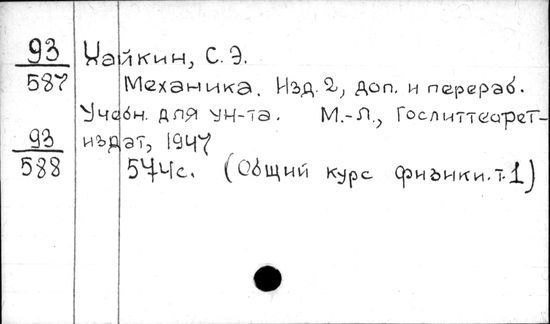 93 Хайкин, С. Э.
587 Механика. Изд. 2, доп. и перераб.
Учебн. для ун-та. М.-Л., Гослиттеорет-
93 издат, 1947
588 574с. (Общий курс физики. т. 1)